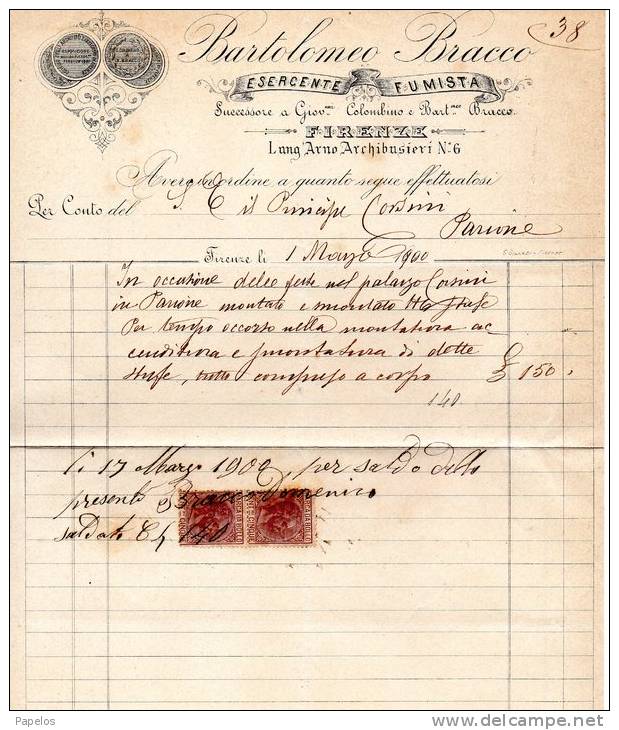 38
Bartolomeo Bracco
ESERCENTE FUMISTA
Successore a Giov.ni Colombino e Bart.meo Bracco.
FIRENZE
Lung'Arno Archibusieri No. 6
Aver ordine a quanto segue effettuatosi
Per Conto del S. E. il Principe Corsini
Parione
Firenze li 1 Marzo 1900
In occasione delle feste nel palazzo Corsini
in Parione montato e smontato stufe
Per tempo occorso nella montatura ac
cenditura e smontatura di dette
stufe, tutto compreso a corpo £ 150
140
li 17 Marzo 1900, per saldo dello
presente Bracco Domenico
saldato 140
Papelos
www.delcampe.net